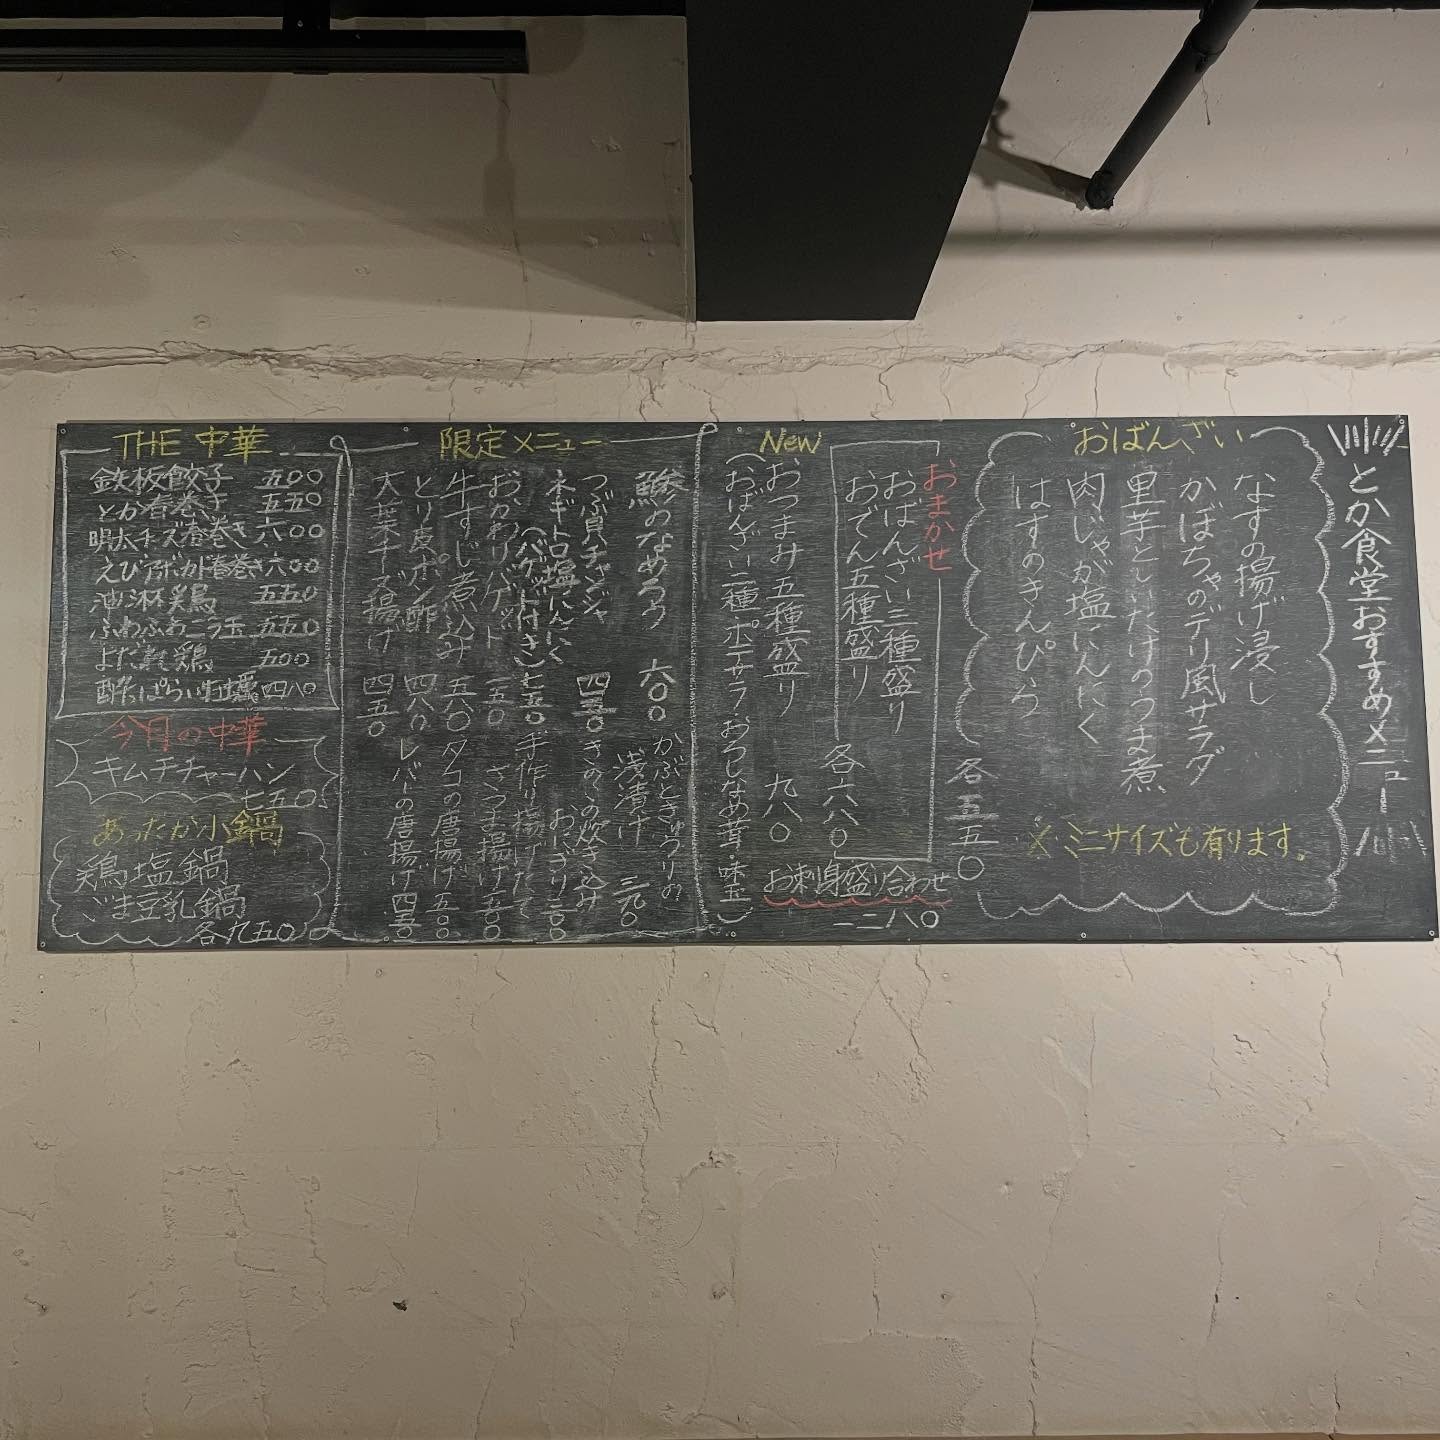 とか食堂おすすめメニュー
おばんざい
なすの揚げ浸し
かぼちゃのデリ風サラダ
里芋としいたけのうま煮
肉じゃが塩にんにく
はすのきんぴら
各五五〇
※ミニサイズも有ります。
おまかせ
おばんざい三種盛り
おでん五種盛り
各六八〇
お刺身盛り合わせ
一二八〇
New
おつまみ五種盛り
九八〇
(おばんざい二種・ポテサラ・おろしなめ茸・味玉)
限定メニュー
鯵のなめろう 六〇〇
つぶ貝チャンジャ 四五〇
ネギトロ塩にんにく
(バゲット付き) 七五〇
おかわりバゲット 一五〇
牛すじ煮込み 五八〇
とり皮ポン酢 四八〇
大葉チーズ揚げ 四五〇
かぶときゅうりの
浅漬け 三九〇
きのこの炊き込み
おにぎり 二〇〇
手作り揚げたて
さつま揚げ 五〇〇
タコの唐揚げ 五〇〇
レバーの唐揚げ 四五〇
THE 中華
鉄板餃子 五〇〇
とか春巻き 五五〇
明太チーズ春巻き 六〇〇
えびアボカド春巻き 六〇〇
油淋鶏 五五〇
ふわふわニラ玉 五五〇
よだれ鶏 五〇〇
酔っぱらい牡蠣 四八〇
今月の中華
キムチチャーハン
七五〇
あったか小鍋
鶏塩鍋
ごま豆乳鍋
各九五〇